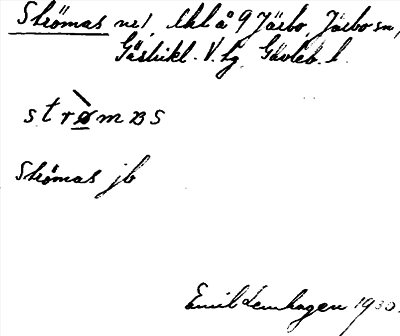 Strömas ne), lhl å 9 Järbo, Järbo sn,
Gästrikl. V. hg, Gävleb. l.
strømBs
Strömas jb
Emil Lenhagen 1930.